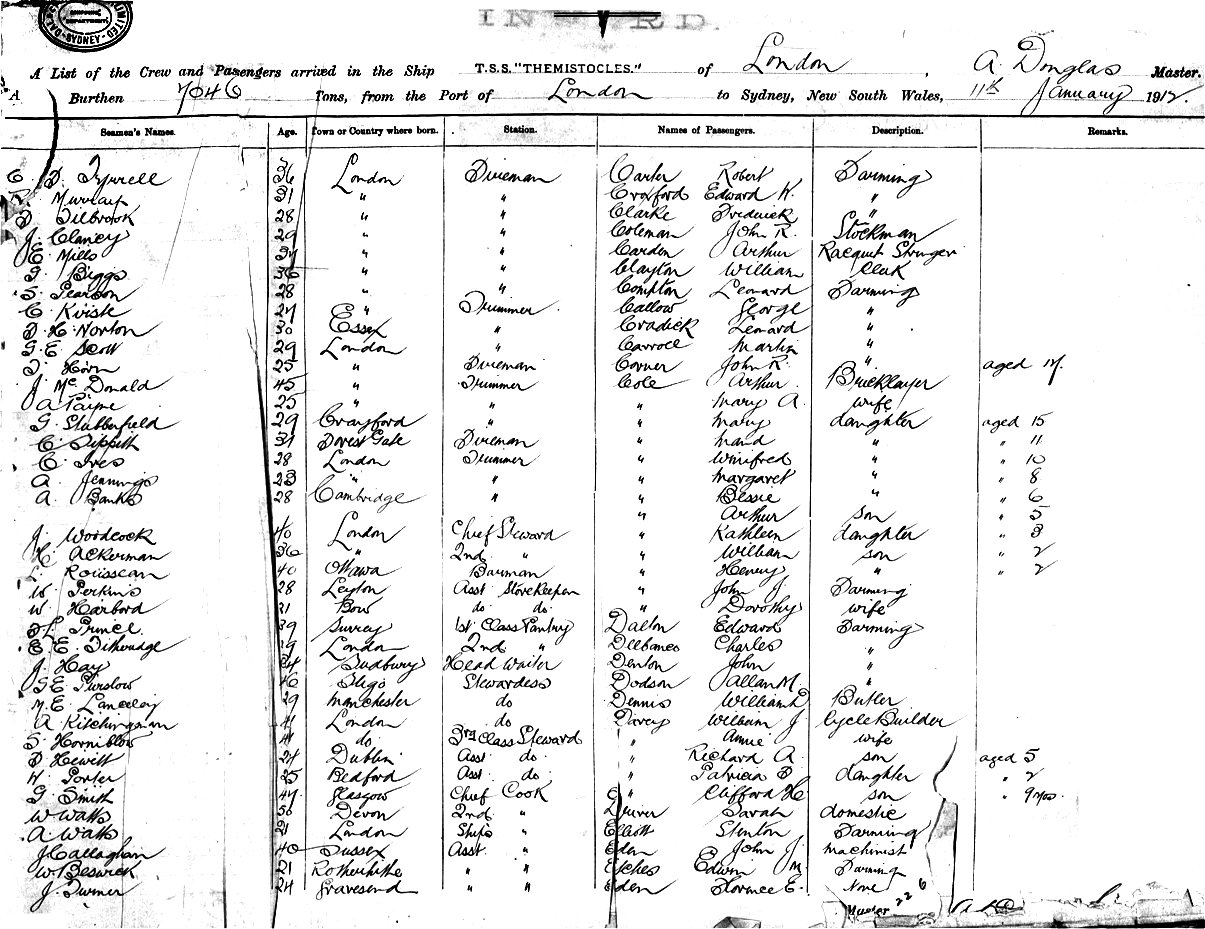 LIMITED
SHIPPING DEPARTMENT
SYDNEY
INWARD.
A List of the Crew and Passengers arrived in the Ship T.S.S. "THEMISTOCLES." of London, A. Douglas Master.
A Burthen 7046 Tons, from the Port of London to Sydney, New South Wales, 11th January 1912.
Seamen's Names. Age. Town or Country where born. Station. Names of Passengers. Description. Remarks.
C. D. Tyrrell 36 London Fireman Carter Robert Farming
R. Murray 31 " " Croxford Edward H. "
D. Tilbrook 28 " " Clarke Frederick "
J. Clancy 29 " " Coleman John R. Stockman
E. Mills 37 " " Carden Arthur Racquet Stringer
G. Biggs 36 " " Clayton William Clerk
S. Pearson 28 " " Compton Leonard Farming
C. 27 " Trimmer Callow George "
D. H. Norton 30 Essex " Cradick Lenard "
G. E. Scott 29 London " Carroll Martin "
T. Horn 25 " Fireman Corner John R. " aged 17.
J. McDonald 45 " Trimmer Cole Arthur Bricklayer
A. Payne 25 " " " Mary A. wife
G. Stubberfield 29 Crayford " " Mary daughter aged 15
C. Tippett 31 Forest Gate Fireman " Maud " " 11
C. Ives 28 London Trimmer " Winifred " " 10
A. Jennings 23 " " " Margaret " " 8
A. Banks 28 Cambridge " " Bessie " " 6
" Arthur son " 5
J. Woodcock 40 London Chief Steward " Kathleen daughter " 3
H. Ackerman 36 " 2nd " " William son " 2
L. Rousseau 40 Ottawa Barman " Henry " " 2
W. Perkins 28 Leyton Asst Storekeeper " John J. Farming
W. Harbord 21 Bow do do " Dorothy wife
F. L. Prince 39 Surrey 1st Class Pantry Dalton Edward Farming
E. E. 19 London 2nd " Charles "
J. Hay 34 Sudbury Head Waiter Denton John "
G. E. Purslow 46 Sligo Stewardess Dodson Allan M. "
M. E. Lanceley 29 Manchester do Dennis William Butler
A. Kitchingman 41 London do Darcy William J Cycle Builder
S. Horniblow 41 do 3rd Class Steward " Annie wife
D. Hewitt 24 Dublin Asst do " Richard A. son aged 5
H. Porter 25 Bedford Asst do " Patricia D daughter " 2
G. Smith 47 Glasgow Chief Cook " Clifford H son " 9 mos.
W. Watts 50 Devon 2nd " Driver Sarah domestic
A. Watts 21 London Ships " Elliott Stenton Farming
J. Callaghan 40 Sussex Asst. " Eden John J. Machinist
W. Beswick 21 Rotherhithe " " Etches Edwin M Farming
J. Turner 24 Gravesend " " Eden Florence E. None
Muster 22 6